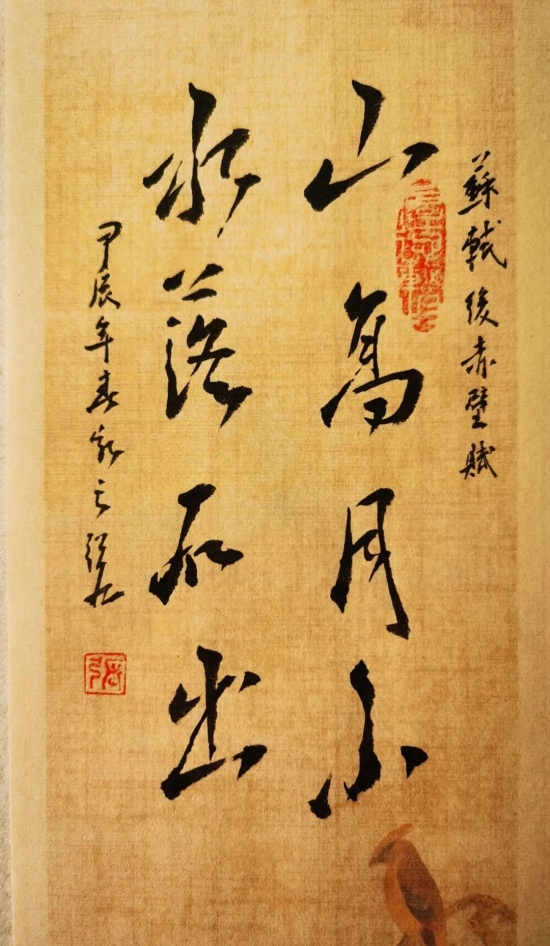 蘇軾後赤壁賦
山高月小
水落石出
甲辰年春
張